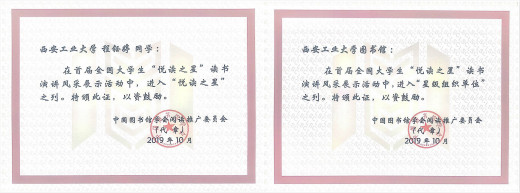 西安工业大学 程钰婷 同学：
在首届全国大学生“悦读之星”读书
演讲风采展示活动中，进入“悦读之星”
之列。特颁此证，以资鼓励。
中国图书馆学会阅读推广委员会
（代 章）
2019年10月
西安工业大学图书馆：
在首届全国大学生“悦读之星”读书
演讲风采展示活动中，进入“星级组织单位”
之列。特颁此证，以资鼓励。
中国图书馆学会阅读推广委员会
（代 章）
2019年10月